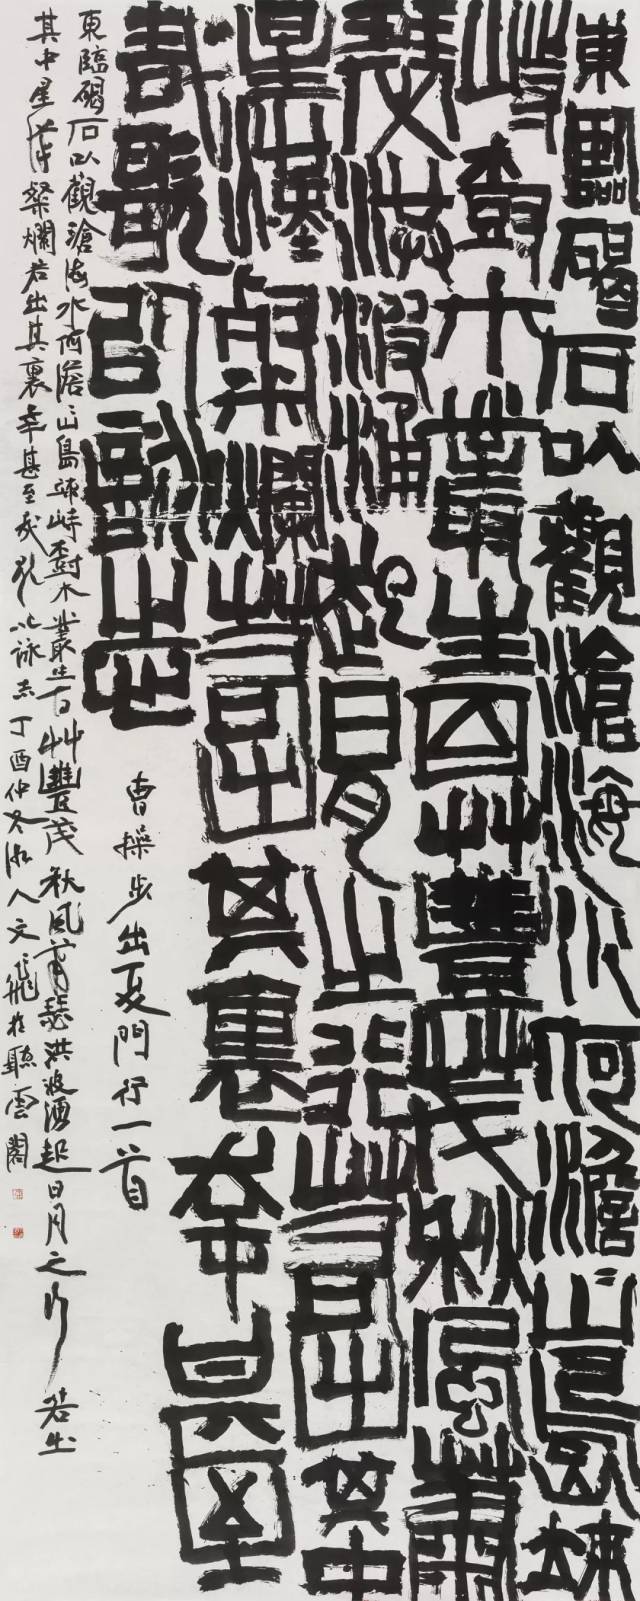 東臨碣石以觀滄海水何澹〻山島竦
峙樹木叢生百艸豐茂秋風蕭
瑟洪波涌起日月之行若出其中
星漢粲爛若出其裏幸甚至
哉歌以詠志
曹操步出夏門行一首
東臨碣石以觀滄海水何澹〻山島竦峙樹木叢生百艸豐茂秋風蕭瑟洪波湧起日月之行若出
其中星漢燦爛若出其裏幸甚至哉歌以詠志丁酉仲冬湘人文飛於聽雲閣